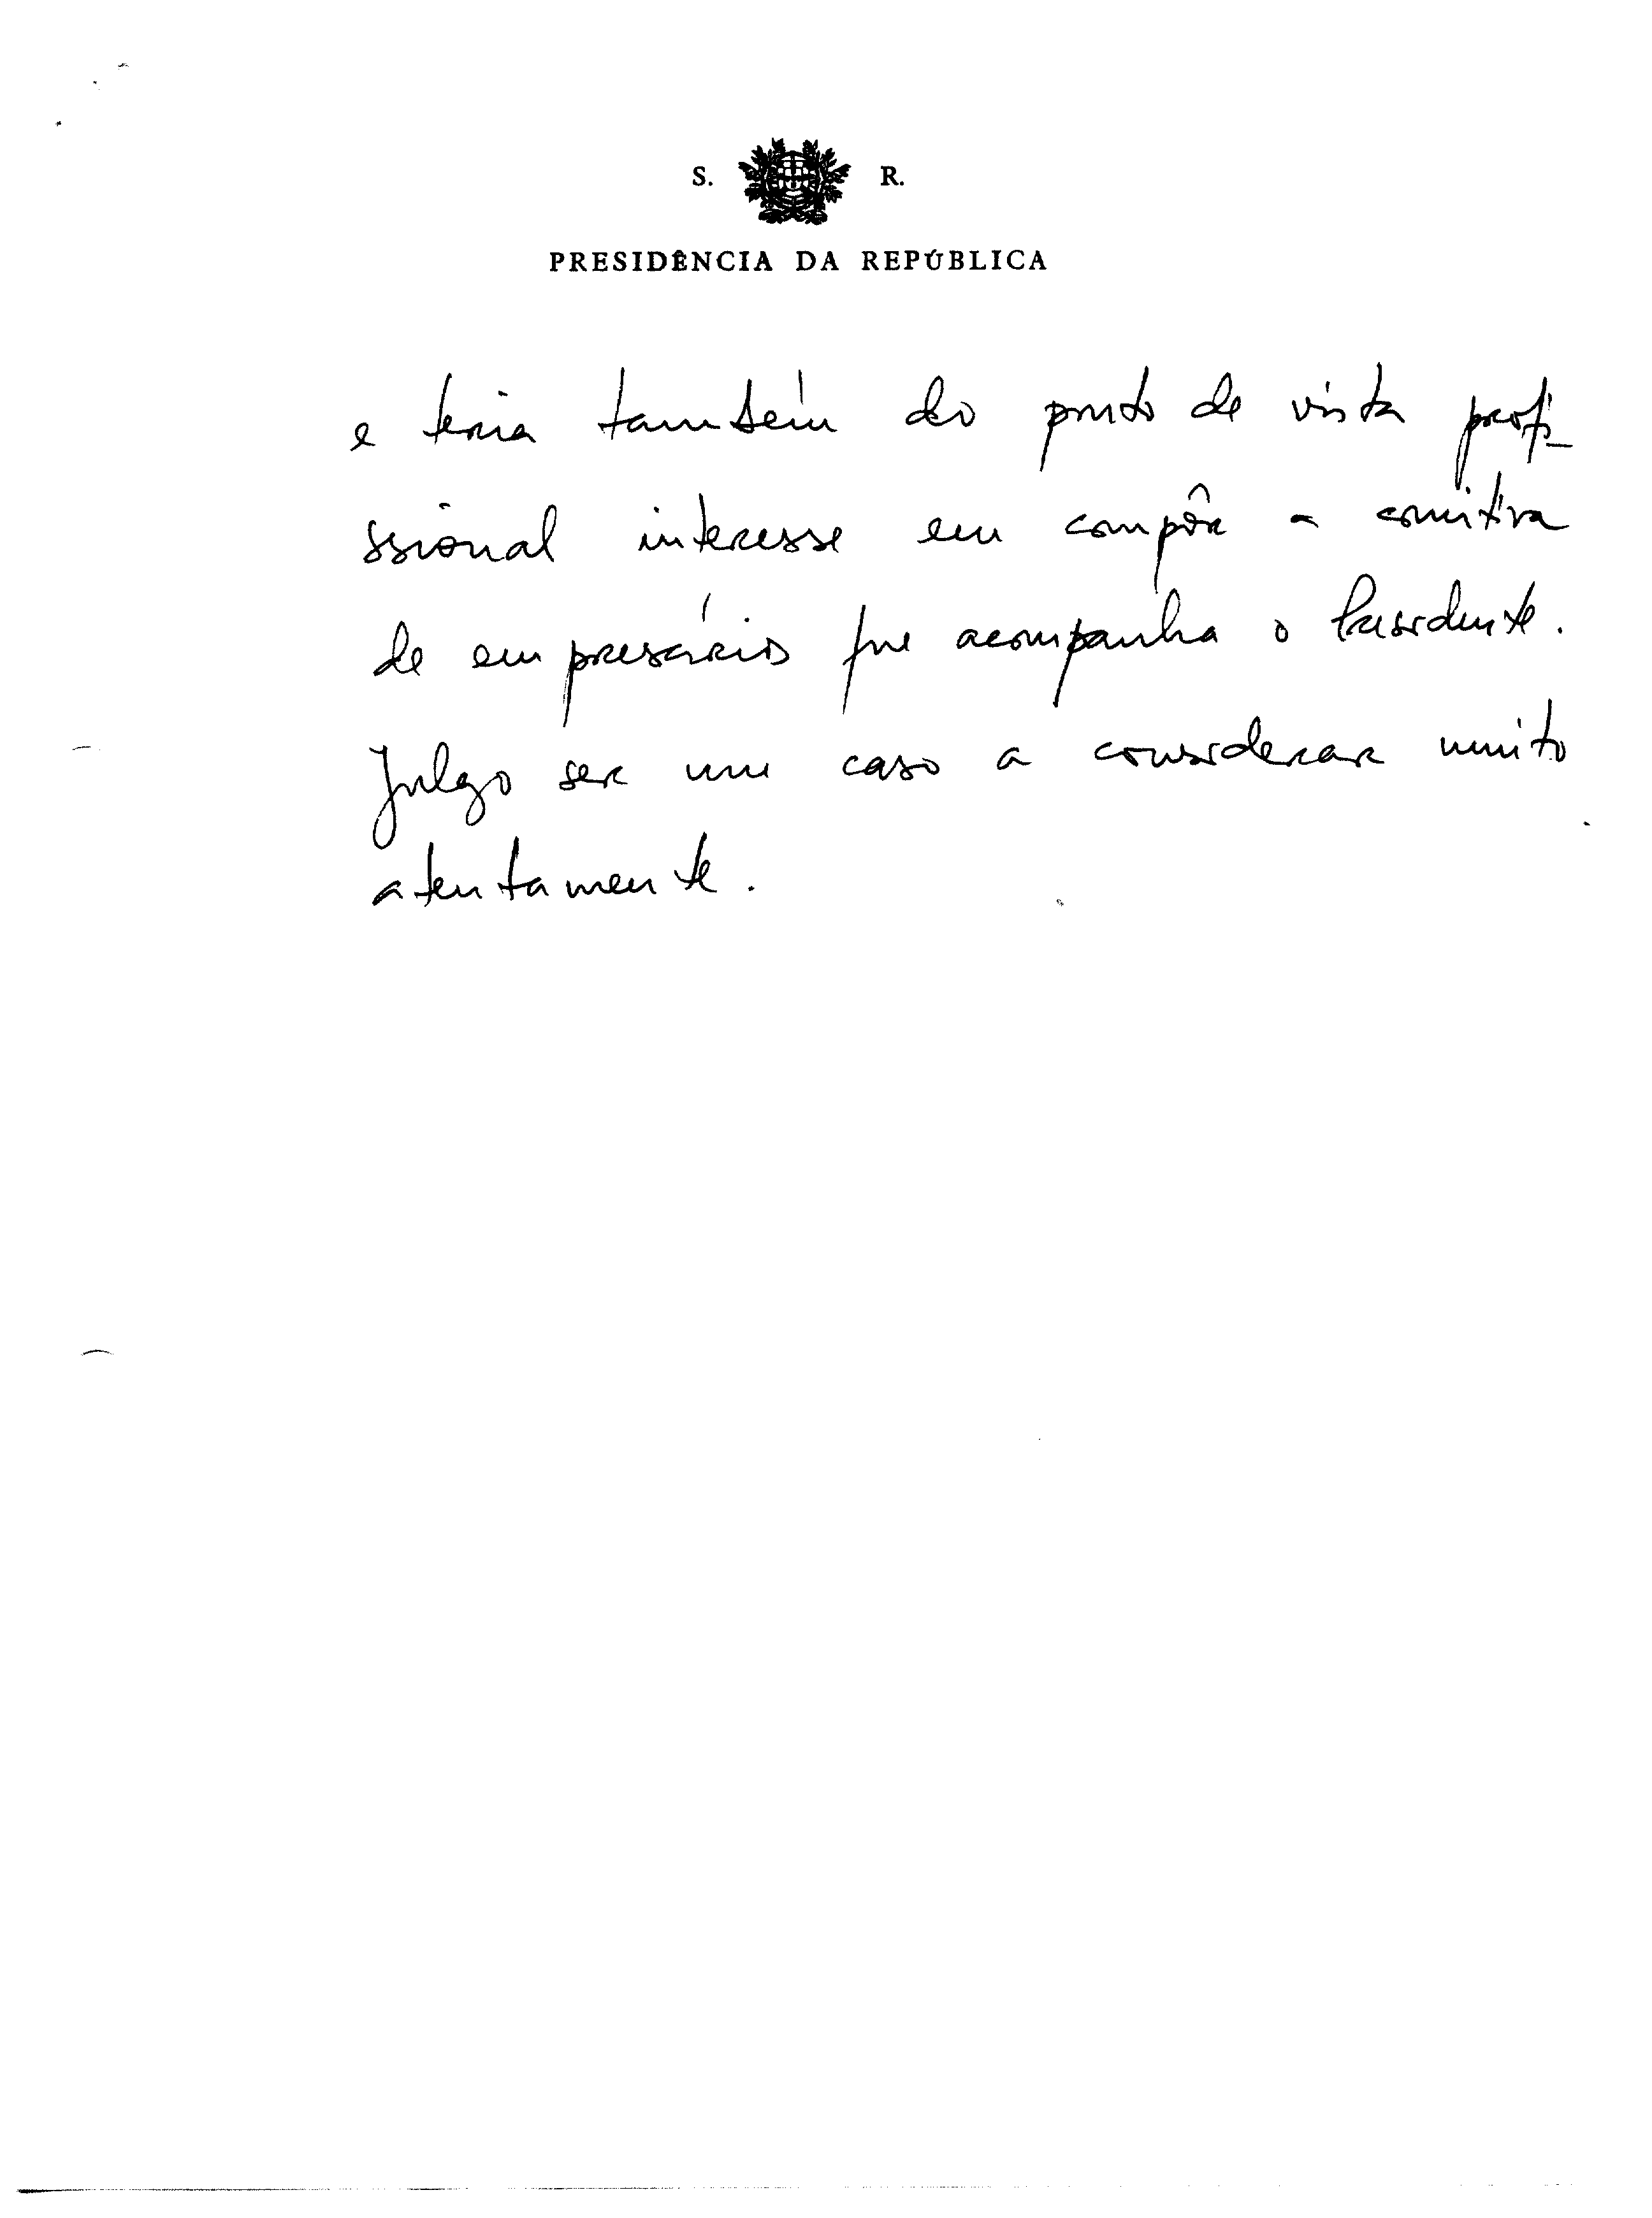 S. R.
PRESIDÊNCIA DA REPÚBLICA
e teria também do ponto de vista profi-
ssional interesse em compôr a comitiva
de empresários que acompanha o Presidente.
Julgo ser um caso a considerar muito
atentamente.